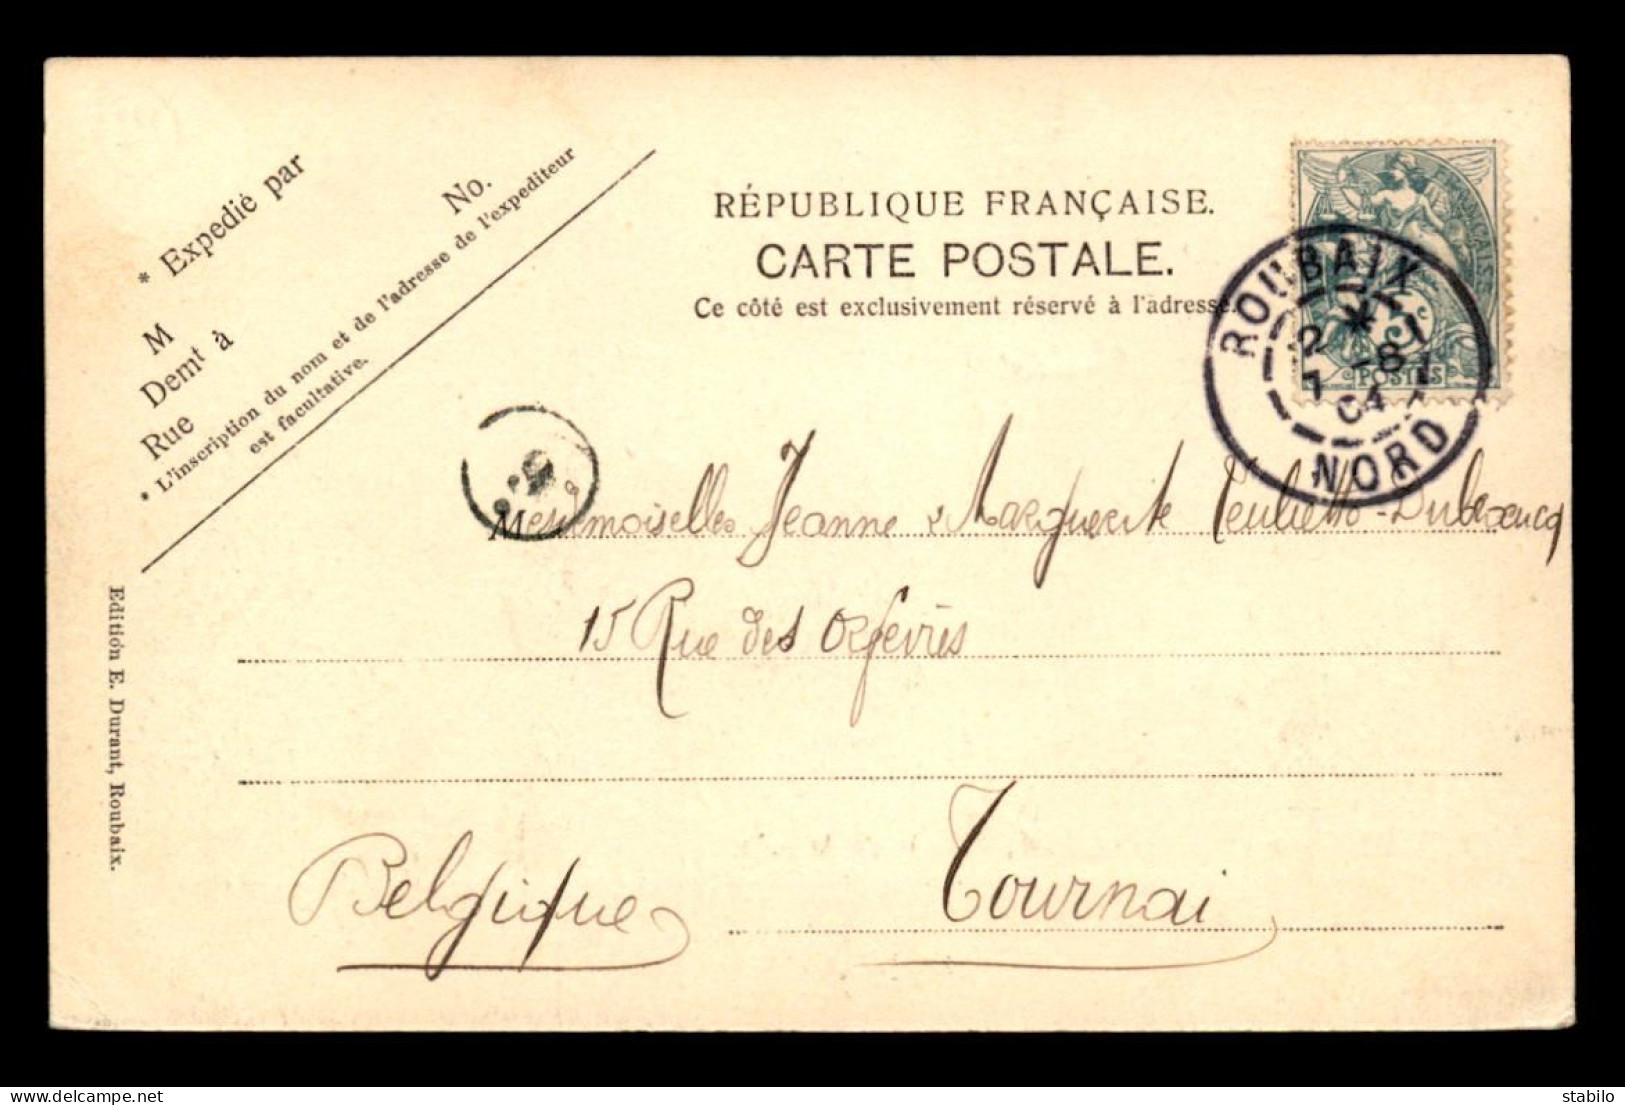 * Expedié par
No.
M
Demt à
Rue
* L'inscription du nom et de l'adresse de l'expediteur
est facultative.
RÉPUBLIQUE FRANÇAISE.
CARTE POSTALE.
Ce côté est exclusivement réservé à l'adresse.
FRANÇAISE
POSTES
5c
ROUBAIX
*
04
NORD
Mesdemoiselles Jeanne & Marguerite
15 Rue des Orfèvres
Tournai
Belgique
Edition E. Durant, Roubaix.
delcampe.net
stabilo